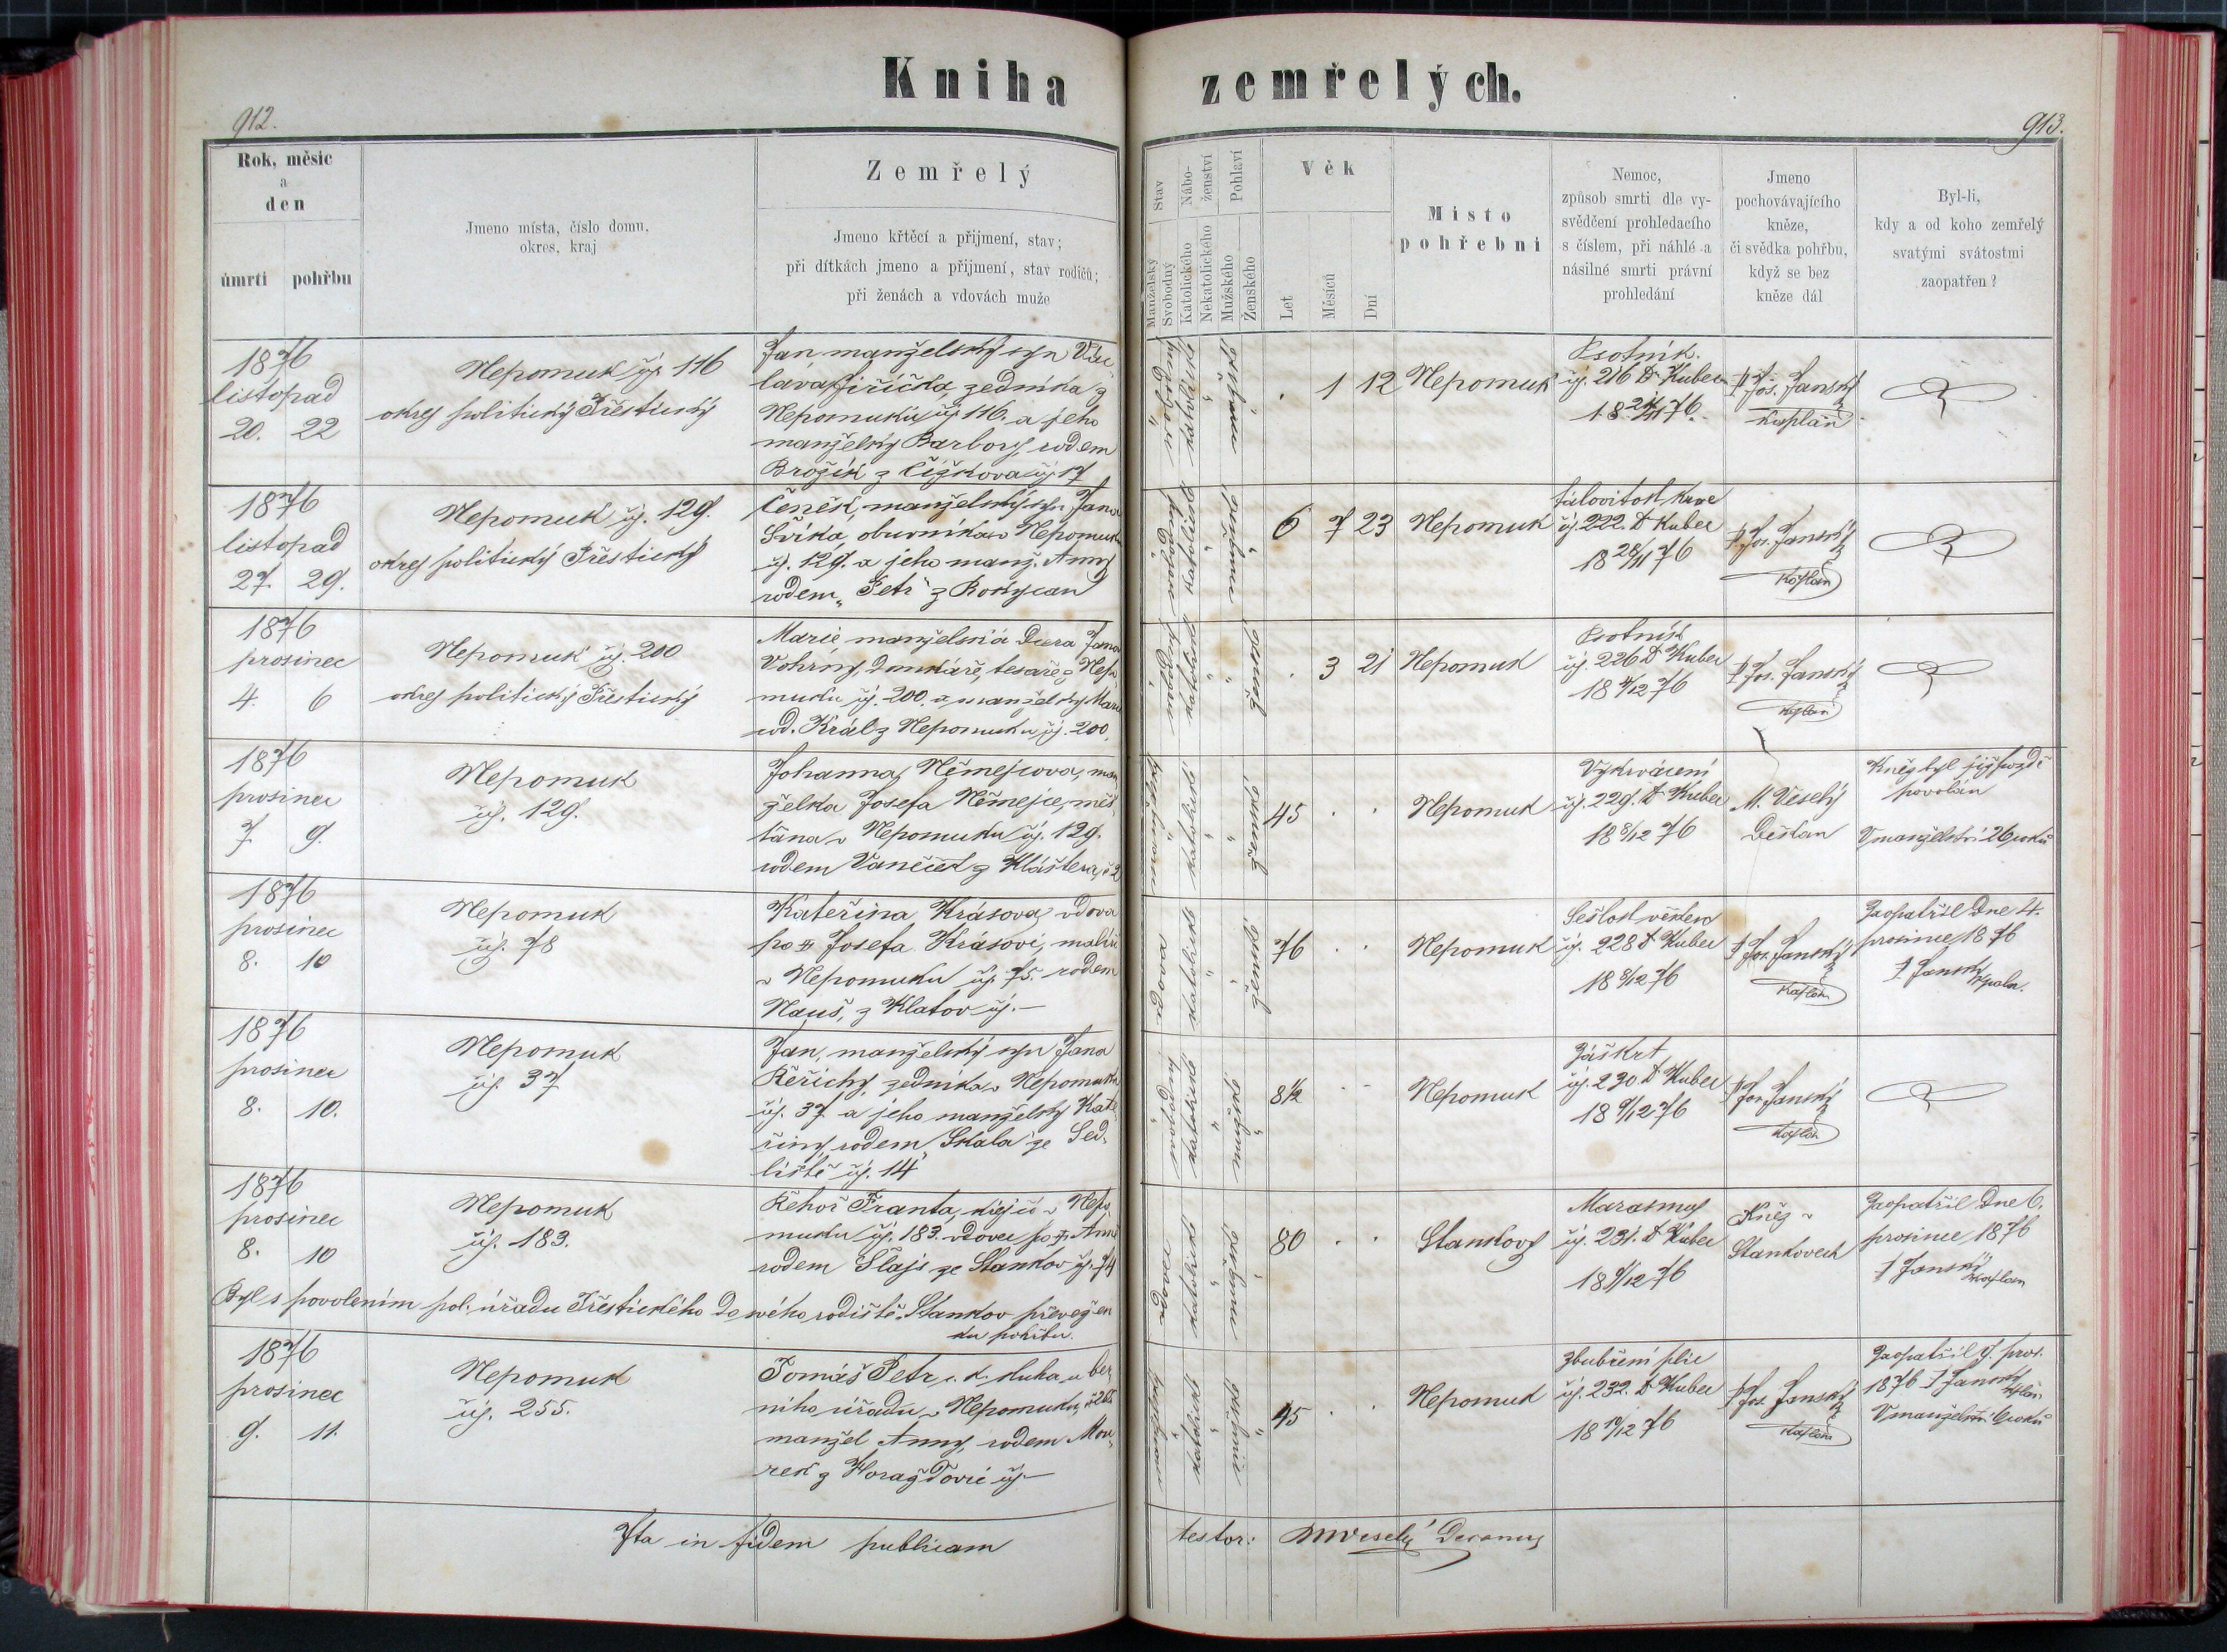 Kniha zemřelých.
912.
913.
Rok, měsíc
a
den
úmrtí pohřbu
Jmeno místa, číslo domu,
okres, kraj
Zemřelý
Jmeno křtěcí a přijmení, stav;
při dítkách jmeno a přijmení, stav rodičů;
při ženách a vdovách muže
Stav
Manželský
Svobodný
Nábo-
ženství
Katolického
Nekatolického
Pohlaví
Mužského
Ženského
Věk
Let
Měsíců
Dní
Místo
pohřební
Nemoc,
způsob smrti dle vy-
svědčení prohledacího
s číslem, při náhlé a
násilné smrti právní
prohledání
Jmeno
pochovávajícího
kněze,
či svědka pohřbu,
když se bez
kněze dál
Byl-li,
kdy a od koho zemřelý
svatými svátostmi
zaopatřen?
1876
listopad
20. 22
Nepomuk čj. 116
okres politický Přestický
Jan manželský syn Vác
lava Jiřička, zedníka z
Nepomuku čj 116. a jeho
manželky Barbory, rodem
Brožík z Čížkova čj 17
1 12
Nepomuk
Psotník.
čj. 216 Dr Kuber
18 21/11 76.
P. Jos. Janský
Kaplan
1876
listopad
27. 29.
Nepomuk čj. 129.
okres politický Přestický
Čeněk, manželský syn Jana
Šírka, obuvníka v Nepomuku
čj. 129. a jeho manž. Anny
rodem „Petr“ z Rokycan
6 7 23
Nepomuk
krve
čj. 222. Dr Kuber
18 28/11 76
P. Jos. Janský
Kaplan
1876
prosinec
4. 6
Nepomuk čj. 200
okres politický Přestický
Marie manželská dcera Jana
tesaře z Nepo
muku čj. 200. a manželky Marie
rod. Král z Nepomuku čj. 200.
3 21
Nepomuk
Psotník
čj. 226 Dr Kuber
18 4/12 76
P. Jos. Janský
Kaplan
1876
prosinec
7. 9.
Nepomuk
čj. 129.
Johanna Němejcova, man
želka Josefa Němejce, měš
ťana v Nepomuku čj. 129.
rodem Vaněček z Kláštera č 2
45
Nepomuk
Vykrvácení
čj. 229. Dr Kuber
18 8/12 76
M. Veselý
Děkan
Kněz byl již pozdě
povolán
V manželství 26 roků
1876
prosinec
8. 10
Nepomuk
čj. 78
Kateřina Krásova, vdova
po Josefa Krásovi, malíři
v Nepomuku čj. 75. rodem
z Klatov čj. –
76
Nepomuk
Sešlost věkem
čj. 228 Dr Kuber
18 8/12 76
P. Jos. Janský
Kaplan
Zaopatřil dne 4.
prosince 1876
J. Janský kaplan.
1876
prosinec
8. 10.
Nepomuk
čj. 37
Jan, manželský syn Jana
Řeřichy, zedníka v Nepomuku
čj. 37 a jeho manželky Kate
řiny, rodem Skala ze Sed
liště čj. 14
8½
Nepomuk
Záškrt
čj. 230. Dr Kuber
18 9/12 76
P. Jos. Janský
Kaplan
1876
prosinec
8. 10
Nepomuk
čj. 183.
Řehoř Franta, v Nepo
muku čj. 183. vdovec po † Anně
rodem Šlajs ze Stankov čj. 74
Byl s povolením pol. úřadu Přestického do svého rodiště Stankov převežen
ku pohřbu.
80
Stankovy
Marasmus
čj. 231. Dr Kuber
18 9/12 76
Kněz v
Stankovech
Zaopatřil dne 6.
prosince 1876
J. Janský
Kaplan
1876
prosinec
9. 11.
Nepomuk
čj. 255.
Tomáš Petr, c. k. sluha u ber
niho úřadu v Nepomuku, č 255
manžel Anny, rodem Mou
rek z Horažďovic čj –
45
Nepomuk
Zbubření plic
čj. 232. Dr Kuber
18 10/12 76
P. Jos. Janský
Kaplan
Zaopatřil 9. pros.
1876 J Janský
Kaplan
V manželství 6 roků
Ita in fidem publicam
testor: M Veselý Decanus